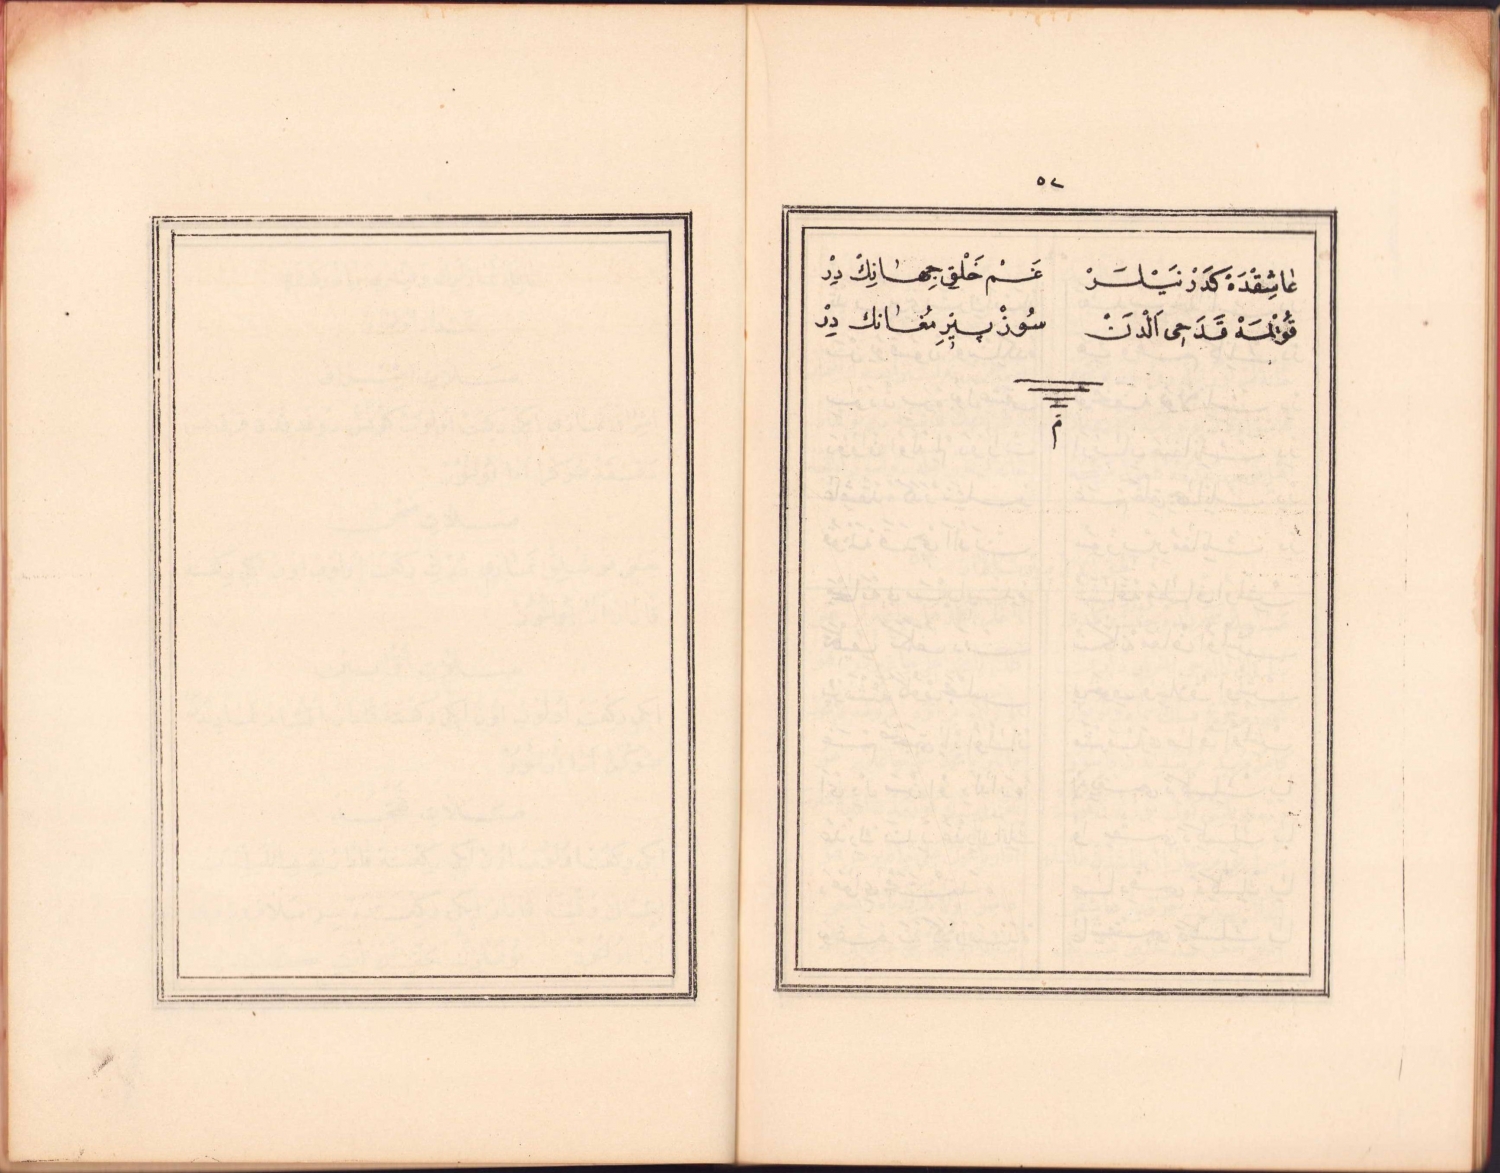 ٥٧
عَاشِقْدَهْ كَدَرْ نَيْلَرْ غَمْ خَلْقِ جِهَانِكْ دِرْ
قُويْمَهْ قَدَحِى اَلْدَنْ سُوزْ پِيرِ مُغَانِكْ دِرْ
م